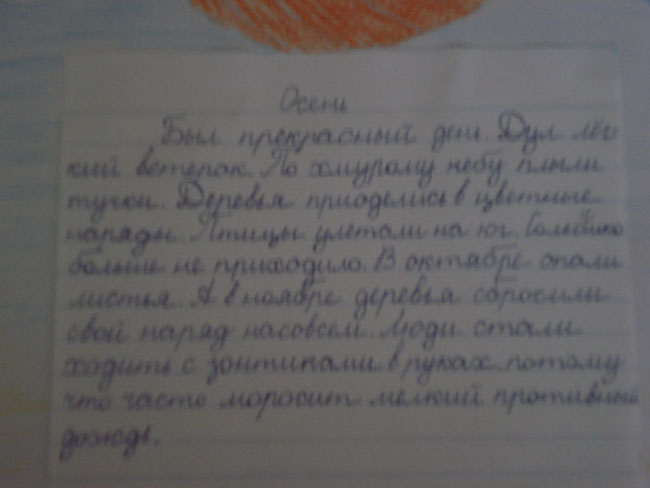 Осень
Был прекрасный день. Дул лёг-
кий ветерок. По хмурому небу плыли
тучки. Деревья приоделись в цветные
наряды. Птицы улетали на юг. Солнышко
больше не приходило. В октябре опали
листья. А в ноябре деревья сбросили
свой наряд насовсем. Люди стали
ходить с зонтиками в руках, потому
что часто моросит мелкий противный
дождь.